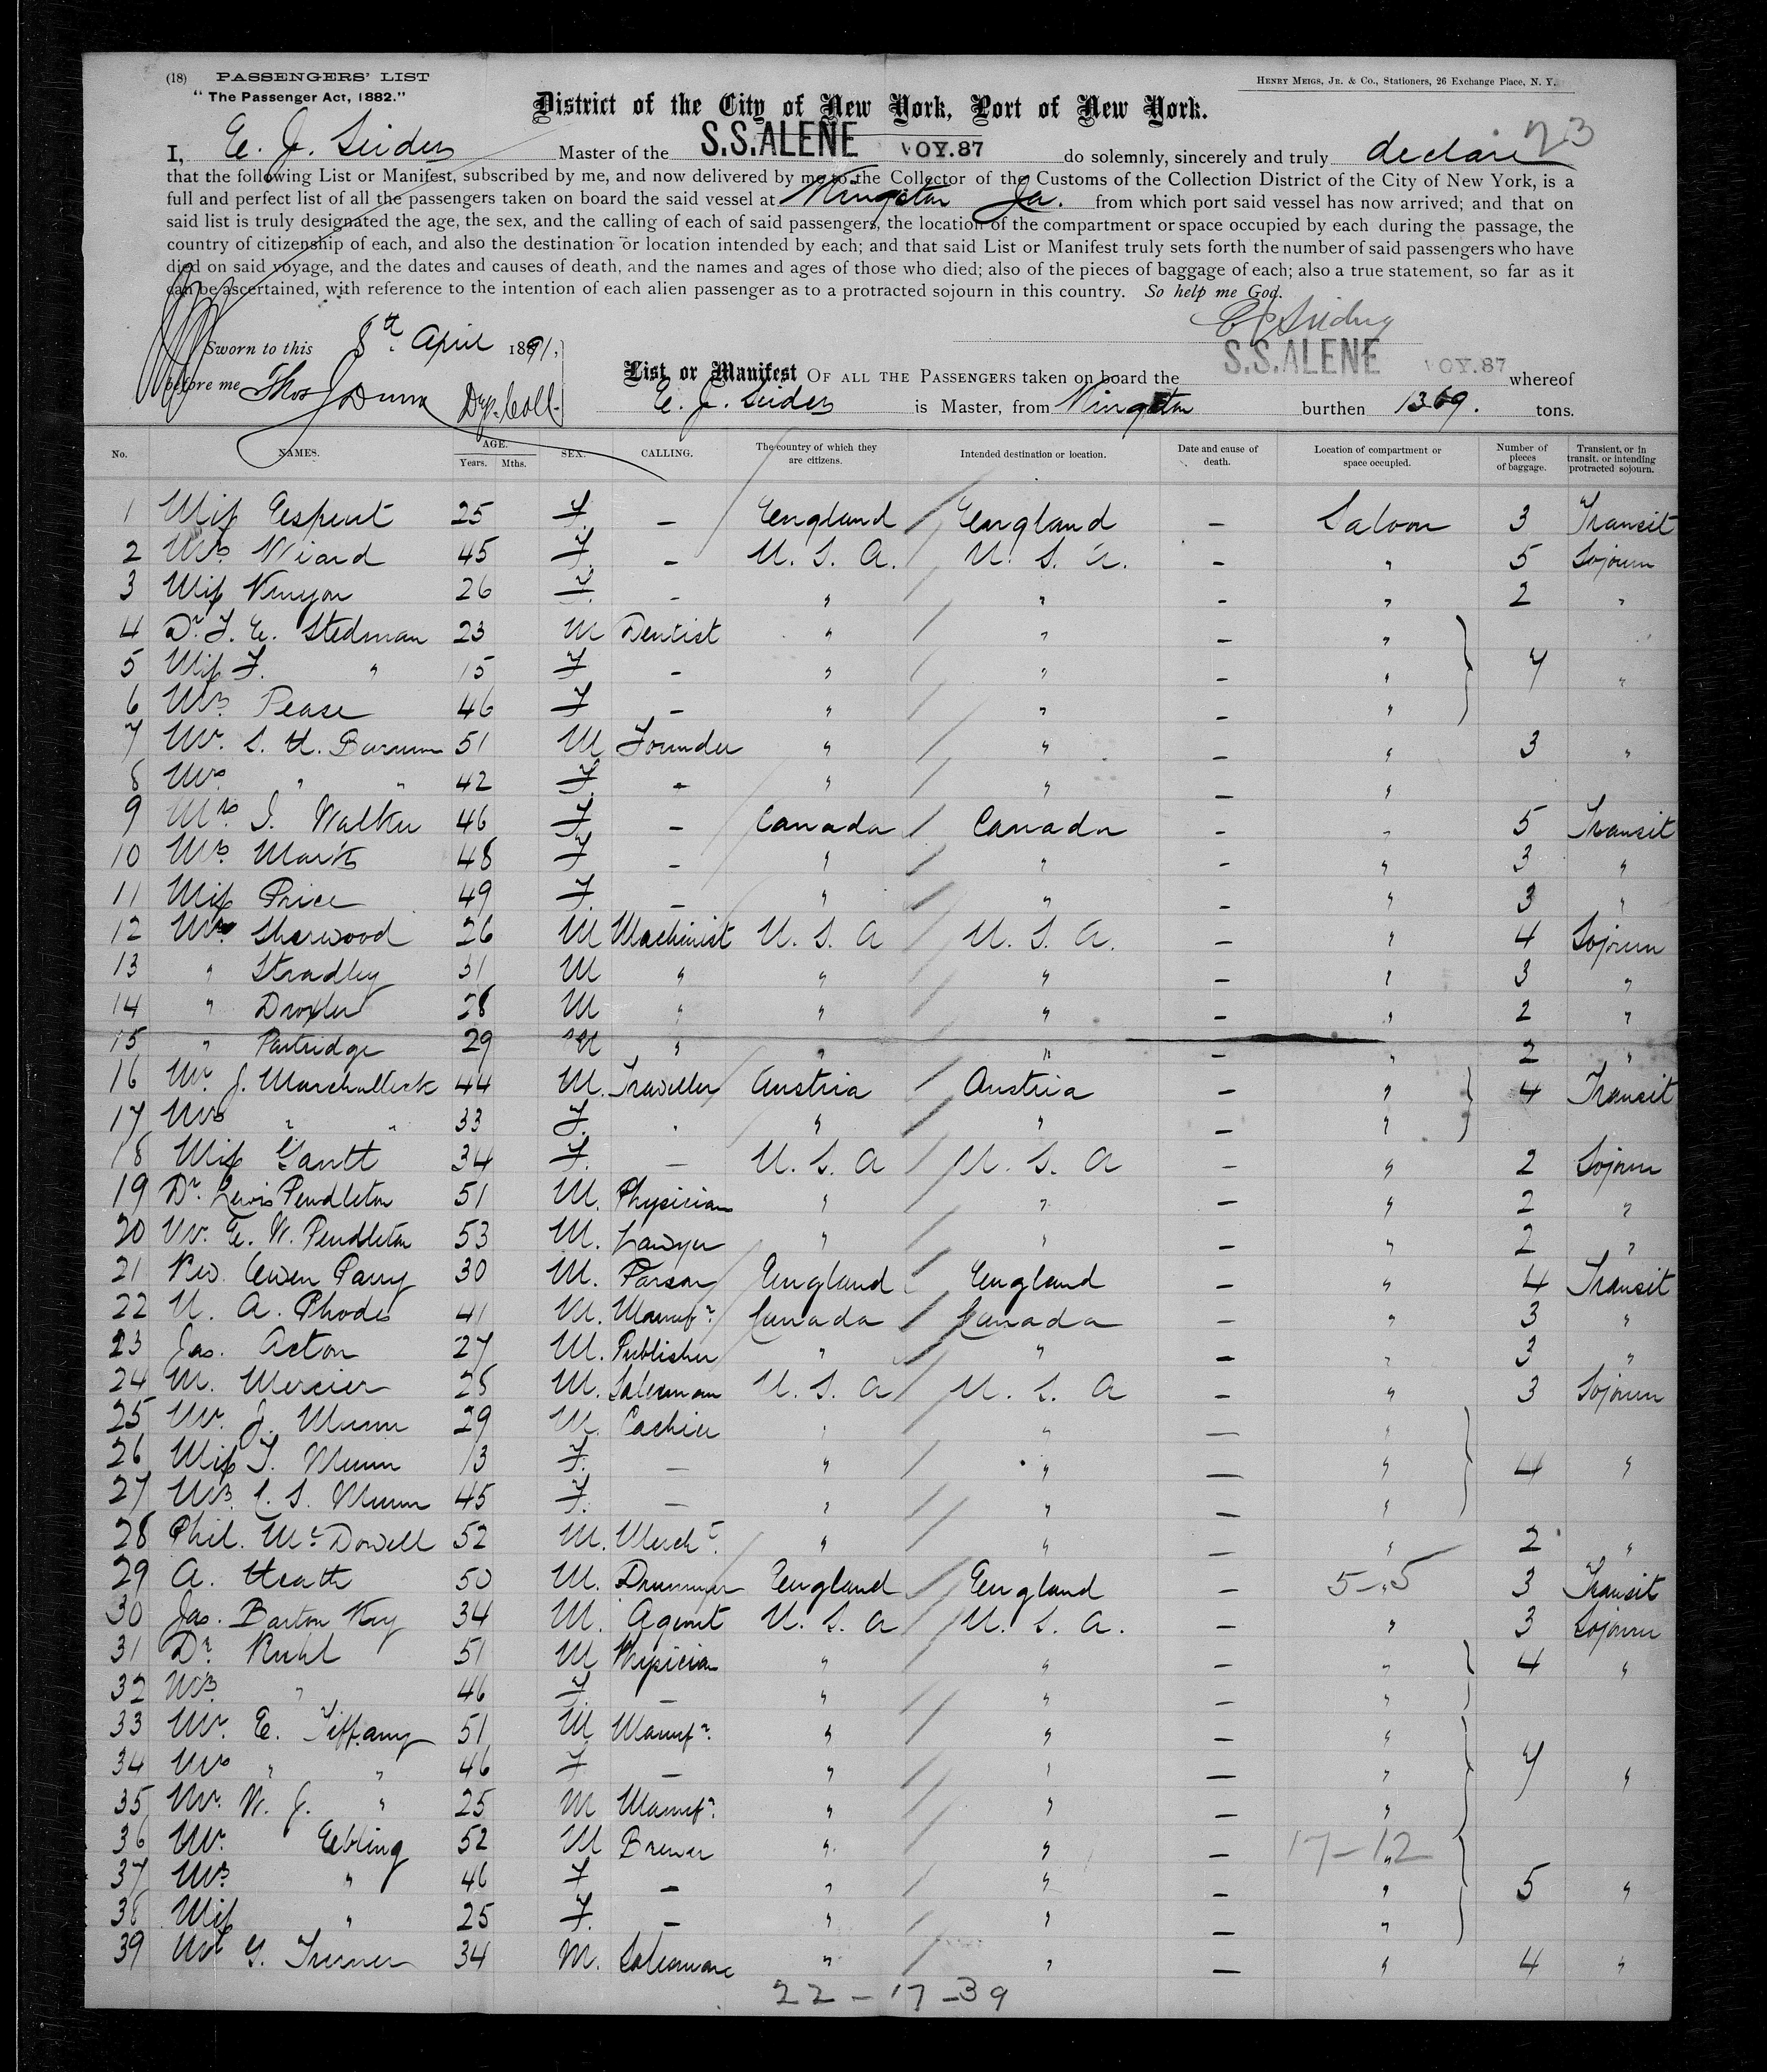 (18) PASSENGERS' LIST
"The Passenger Act, 1882."
HENRY MEIGS, JR. & CO., Stationers, 26 Exchange Place, N. Y.
District of the City of New York, Port of New York.
23
I, E. J. Seiders Master of the S.S. ALENE VOY. 87 do solemnly, sincerely and truly declare
that the following List or Manifest, subscribed by me, and now delivered by me to the Collector of the Customs of the Collection District of the City of New York, is a
full and perfect list of all the passengers taken on board the said vessel at Kingston Ja. from which port said vessel has now arrived; and that on
said list is truly designated the age, the sex, and the calling of each of said passengers, the location of the compartment or space occupied by each during the passage, the
country of citizenship of each, and also the destination or location intended by each; and that said List or Manifest truly sets forth the number of said passengers who have
died on said voyage, and the dates and causes of death, and the names and ages of those who died; also of the pieces of baggage of each; also a true statement, so far as it
can be ascertained, with reference to the intention of each alien passenger as to a protracted sojourn in this country. So help me God.
Sworn to this 8th April 1891,
before me Thos J Dunn Dep. Coll.
List or Manifest OF ALL THE PASSENGERS taken on board the S.S. ALENE VOY. 87 whereof
E. J. Seiders is Master, from Kingston burthen 1369. tons.
No. NAMES. AGE. Years. Mths. SEX. CALLING. The country of which they are citizens. Intended destination or location. Date and cause of death. Location of compartment or space occupied. Number of pieces of baggage. Transient, or in transit, or intending protracted sojourn.
1 Miss Espeut 25 F. – England England – Saloon 3 Transit
2 Mrs. Wiard 45 F. – U. S. A. U. S. A. – " 5 Sojourn
3 Miss Kenyon 26 F. – " " – " 2 "
4 Dr. F. E. Stedman 23 M Dentist " " – "
5 Miss F. " 15 F – " " – " 7 "
6 Mrs. Pease 46 F – " " – "
7 Mr. S. H. Barnum 51 M Founder " " – " 3 "
8 Mrs. " " 42 F. – " " – "
9 Mrs. J. Walker 46 F – Canada Canada – " 5 Transit
10 Mrs. Marks 48 F – " " – " 3 "
11 Miss Price 49 F. – " " – " 3 "
12 Mr. Sherwood 26 M Machinist U. S. A U. S. A. – " 4 Sojourn
13 " Stradley 31 M " " " – " 3 "
14 " Droxler 28 M " " " – " 2 "
15 " Partridge 29 M " " " – " 2 "
16 Mr. J. Marchalleck 44 M. Traveller Austria Austria – " 4 Transit
17 Mrs " " 33 F. . " " – "
18 Miss Gantt 34 F. – U. S. A U. S. A – " 2 Sojourn
19 Dr. Lewis Pendleton 51 M. Physician " " – " 2 "
20 Mr. E. W. Pendleton 53 M. Lawyer " " – " 2 "
21 Rev. Owen Parry 30 M. Parson England England – " 4 Transit
22 N. A. Rhodes 41 M. Manufr. Canada Canada – " 3 "
23 Jas. Acton 27 M. Publisher " " – " 3 "
24 M. Mercier 28 M. Salesman U. S. A U. S. A – " 3 Sojourn
25 Mr. J. Munn 29 M. Cashier " " – "
26 Miss F. Munn 13 F. – " " – " 4 "
27 Mrs. C. S. Munn 45 F. – " " – "
28 Phil. McDowell 52 M. Mercht. " " – " 2 "
29 A. Heath 50 M. Drummer England England – 5-5 " 3 Transit
30 Jas. Barton Key 34 M. Agent U. S. A U. S. A. – " 3 Sojourn
31 Dr. Ruhl 51 M Physician " " – " 4 "
32 Mrs. " 46 F. – " " – "
33 Mr. E. Tiffany 51 M Manufr. " " – "
34 Mrs " " 46 F – " " – " 7 "
35 Mr. W. J. " 25 M Manufr. " " – "
36 Mr. Eebling 52 M Brewer " " – 17-12 "
37 Mrs. " 46 F – " " – " 5 "
38 Miss " 25 F. – " " – "
39 Mr G. Turner 34 M. Salesman " " – " 4 "
22 – 17 – 39